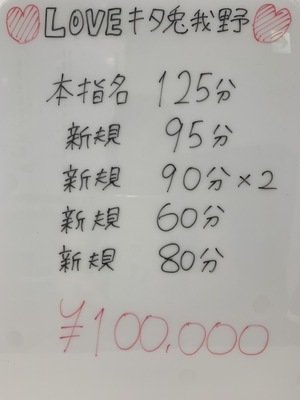 LOVEキタ兎我野
本指名 125分
新規 95分
新規 90分×2
新規 60分
新規 80分
¥100,000